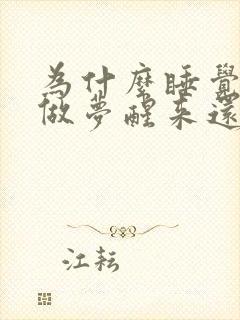 为什麼睡覺
做夢醒来還
江耘